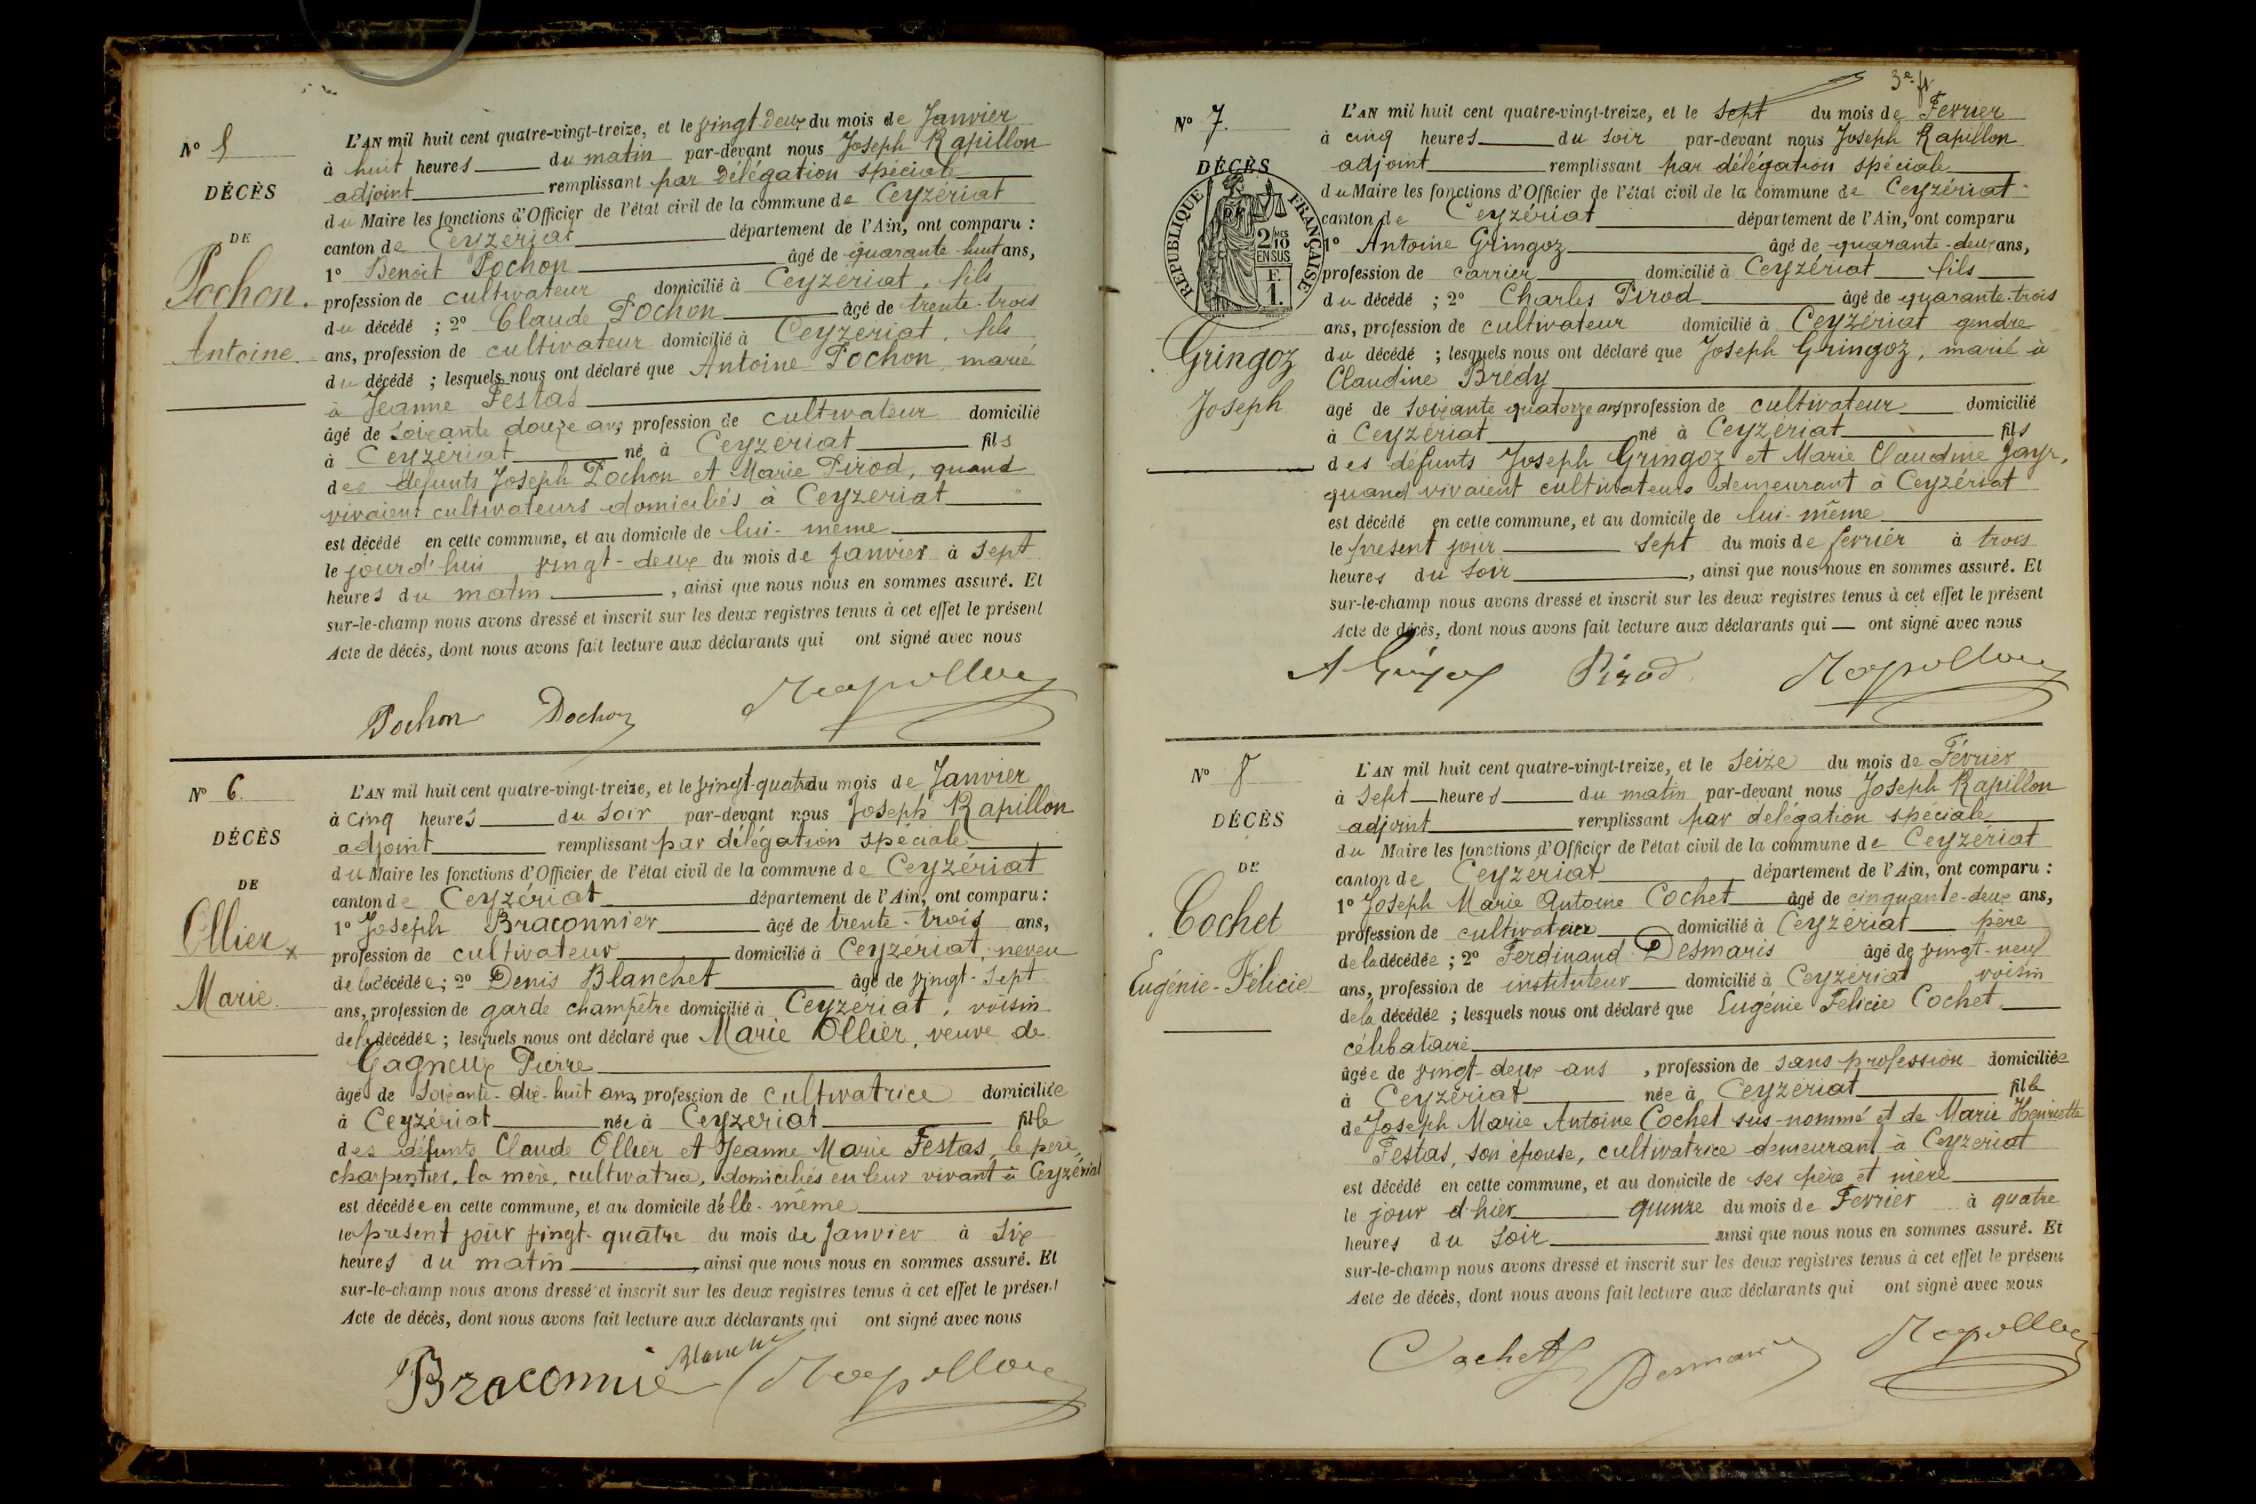 Nº 5
DÉCÈS
DE
Pochon
Antoine
L'AN mil huit cent quatre-vingt-treize, et le vingt-deux du mois de Janvier
à huit heures du matin par-devant nous Joseph Rapillon
adjoint remplissant par délégation spéciale
du Maire les fonctions d'Officier de l'état civil de la commune de Ceyzériat
canton de Ceyzériat département de l'Ain, ont comparu :
1º Benoit Pochon âgé de quarante-huit ans,
profession de cultivateur domicilié à Ceyzériat, fils
du décédé ; 2º Claude Pochon âgé de trente-trois
ans, profession de cultivateur domicilié à Ceyzériat, fils
du décédé ; lesquels nous ont déclaré que Antoine Pochon, marié
à Jeanne Festas
âgé de soixante douze ans, profession de cultivateur domicilié
à Ceyzériat né à Ceyzériat fils
des défunts Joseph Pochon et Marie Pirod, quand
vivaient cultivateurs domiciliés à Ceyzeriat
est décédé en cette commune, et au domicile de lui-même
le jourd'hui vingt-deux du mois de janvier à sept
heures du matin , ainsi que nous nous en sommes assuré. Et
sur-le-champ nous avons dressé et inscrit sur les deux registres tenus à cet effet le présent
Acte de décès, dont nous avons fait lecture aux déclarants qui ont signé avec nous
Pochon Pochon Rapillon
Nº 6
DÉCÈS
DE
Ollier
Marie
L'AN mil huit cent quatre-vingt-treize, et le vingt-quatre du mois de Janvier
à cinq heures du soir par-devant nous Joseph Rapillon
adjoint remplissant par délégation spéciale
du Maire les fonctions d'Officier de l'état civil de la commune de Ceyzériat
canton de Ceyzériat département de l'Ain, ont comparu :
1º Joseph Braconnier âgé de trente-trois ans,
profession de cultivateur domicilié à Ceyzériat, neveu
de la décédée ; 2º Denis Blanchet âgé de vingt-sept
ans, profession de garde champêtre domicilié à Ceyzériat, voisin
de la décédée ; lesquels nous ont déclaré que Marie Ollier, veuve de
Gagneux Pierre
âgé de soixante-dix-huit ans, profession de cultivatrice domiciliée
à Ceyzériat née à Ceyzeriat fille
des défunts Claude Ollier et Jeanne Marie Festas, le père,
charpentier, la mère, cultivatrice, domiciliés en leur vivant à Ceyzériat
est décédée en cette commune, et au domicile d'elle-même
le present jour vingt-quatre du mois de janvier à six
heures du matin , ainsi que nous nous en sommes assuré. Et
sur-le-champ nous avons dressé et inscrit sur les deux registres tenus à cet effet le présent
Acte de décès, dont nous avons fait lecture aux déclarants qui ont signé avec nous
Braconnier Blanchet Rapillon
3e ft
Nº 7.
DÉCÈS
RÉPUBLIQUE FRANÇAISE
2/10 MES
EN SUS
F.
1.
Gringoz
Joseph
L'AN mil huit cent quatre-vingt-treize, et le sept du mois de Fevrier
à cinq heures du soir par-devant nous Joseph Rapillon
adjoint remplissant par délégation spéciale
du Maire les fonctions d'Officier de l'état civil de la commune de Ceyzériat
canton de Ceyzériat département de l'Ain, ont comparu
1º Antoine Gringoz âgé de quarante-deux ans,
profession de carrier domicilié à Ceyzériat fils
du décédé ; 2º Charles Pirod âgé de quarante-trois
ans, profession de cultivateur domicilié à Ceyzériat gendre
du décédé ; lesquels nous ont déclaré que Joseph Gringoz, marié à
Claudine Brédy
âgé de soixante quatorze ans profession de cultivateur domicilié
à Ceyzériat né à Ceyzériat fils
des défunts Joseph Gringoz et Marie Claudine Jayr,
quand vivaient cultivateurs demeurant à Ceyzériat
est décédé en cette commune, et au domicile de lui-même
le present jour sept du mois de fevrier à trois
heures du soir , ainsi que nous nous en sommes assuré. Et
sur-le-champ nous avons dressé et inscrit sur les deux registres tenus à cet effet le présent
Acte de décès, dont nous avons fait lecture aux déclarants qui ont signé avec nous
A Gringoz Pirod Rapillon
Nº 8
DÉCÈS
DE
Cochet
Eugénie-Félicie
L'AN mil huit cent quatre-vingt-treize, et le seize du mois de Février
à sept heures du matin par-devant nous Joseph Rapillon
adjoint remplissant par délégation spéciale
du Maire les fonctions d'Officier de l'état civil de la commune de Ceyzériat
canton de Ceyzériat département de l'Ain, ont comparu :
1º Joseph Marie Antoine Cochet âgé de cinquante-deux ans,
profession de cultivateur domicilié à Ceyzériat père
de la décédée ; 2º Ferdinand Desmaris âgé de vingt-neuf
ans, profession de instituteur domicilié à Ceyzériat voisin
de la décédée ; lesquels nous ont déclaré que Eugénie Felicie Cochet,
célibataire
âgée de vingt-deux ans , profession de sans profession domiciliée
à Ceyzériat née à Ceyzériat fille
de Joseph Marie Antoine Cochet sus-nommé et de Marie Henriette
Festas, son épouse, cultivatrice demeurant à Ceyzeriat
est décédé en cette commune, et au domicile de ses père et mère
le jour d'hier quinze du mois de Fevrier à quatre
heures du soir ainsi que nous nous en sommes assuré. Et
sur-le-champ nous avons dressé et inscrit sur les deux registres tenus à cet effet le présent
Acte de décès, dont nous avons fait lecture aux déclarants qui ont signé avec nous
Cochet Desmaris Rapillon